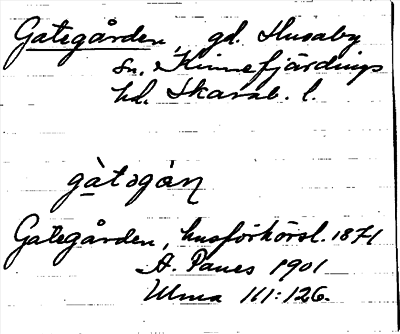 Gategården, gd. Husaby
sn. Kinnefjärdings
hd. Skarab. l.
gàtəgán
Gategården, husförhörsl. 1871
A. Panes 1901
Ulma 111:126.